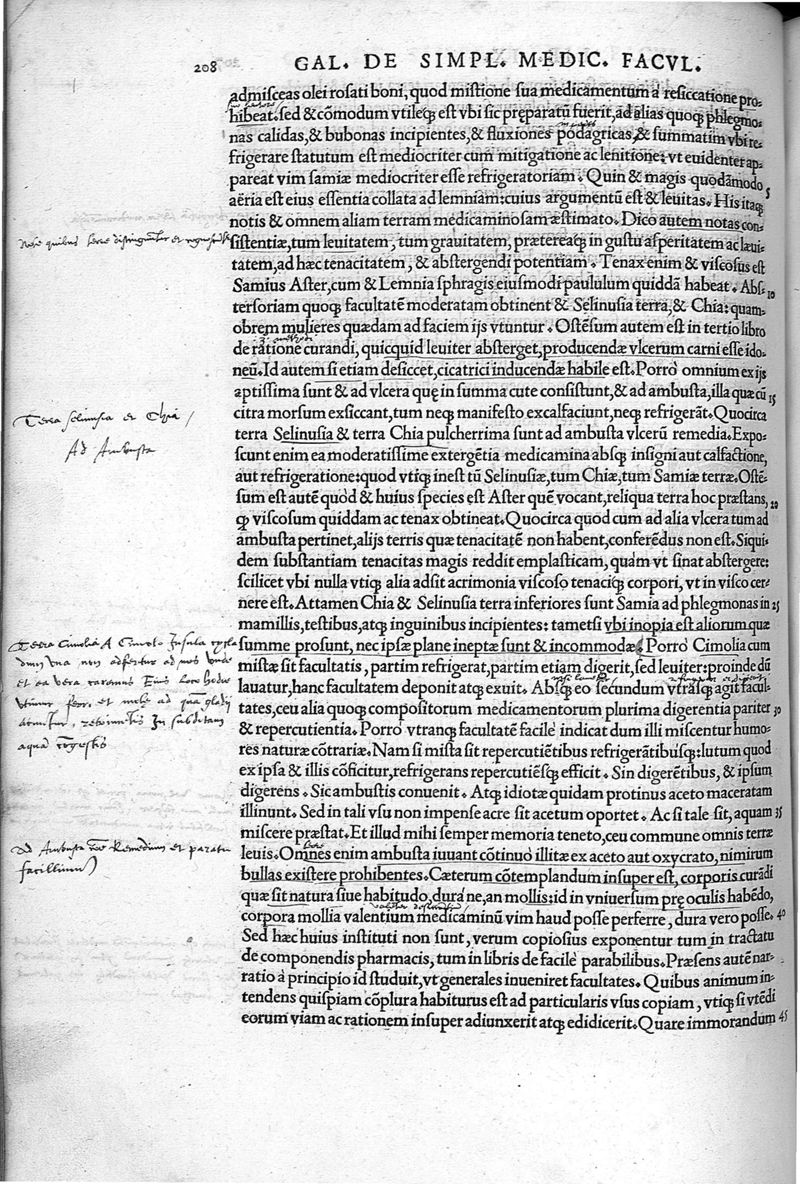 208 GAL. DE SIMPL. MEDIC. FACVL.
admisceas olei rosati boni, quod mistione sua medicamentum a resiccatione pro-
hibeat. sed & cõmodum vtileq́; est vbi sic pręparatũ fuerit, ad alias quoq; phlegmo-
nas calidas, & bubonas incipientes, & fluxiones podagricas, & summatim vbi re-
frigerare statutum est mediocriter cum mitigatione ac lenitione: vt euidenter ap-
pareat vim samiæ mediocriter esse refrigeratoriam. Quin & magis quodãmodo 5
aëria est eius essentia collata ad lemniam: cuius argumentũ est & leuitas. His itaq;
notis & omnem aliam terram medicaminosam æstimato. Dico autem notas con-
sistentiæ, tum leuitatem, tum grauitatem, prætereaq; in gustu asperitatem ac læui-
tatem, ad hæc tenacitatem, & abstergendi potentiam. Tenax enim & viscosus est
Samius Aster, cum & Lemnia sphragis eiusmodi paululum quiddã habeat. Abs- 10
tersoriam quoq; facultatẽ moderatam obtinent & Selinusia terra, & Chia: quam-
obrem mulieres quædam ad faciem ijs vtuntur. Ostẽsum autem est in tertio libro
de ratione curandi, quicquid leuiter absterget, producendæ vlcerum carni esse ido-
neũ. Id autem si etiam desiccet, cicatrici inducendæ habile est. Porrò omnium ex ijs
aptissima sunt & ad vlcera quę in summa cute consistunt, & ad ambusta, illa quæ cũ 15
citra morsum exsiccant, tum neq; manifesto excalfaciunt, neq; refrigerãt. Quocirca
terra Selinusia & terra Chia pulcherrima sunt ad ambusta vlcerũ remedia. Expo-
scunt enim ea moderatissime extergẽtia medicamina absq; insigni aut calfactione,
aut refrigeratione: quod vtiq; inest tũ Selinusiæ, tum Chiæ, tum Samiæ terræ. Ostẽ-
sum est autẽ quòd & huius species est Aster quẽ vocant, reliqua terra hoc præstans, 20
q; viscosum quiddam ac tenax obtineat. Quocirca quod cum ad alia vlcera tum ad
ambusta pertinet, alijs terris quæ tenacitatẽ non habent, conferẽdus non est. Siqui-
dem substantiam tenacitas magis reddit emplasticam, quàm vt sinat abstergere:
scilicet vbi nulla vtiq; alia adsit acrimonia viscoso tenaciq; corpori, vt in visco cer-
nere est. Attamen Chia & Selinusia terra inferiores sunt Samia ad phlegmonas in 25
mamillis, testibus, atq; inguinibus incipientes: tametsi vbi inopia est aliorum quæ
summe prosunt, nec ipsæ plane ineptæ sunt & incommodæ. Porrò Cimolia cum
mistæ sit facultatis, partim refrigerat, partim etiam digerit, sed leuiter: proinde dũ
lauatur, hanc facultatem deponit atq; exuit. Absq; eo secundum vtrasq; agit facul-
tates, ceu alia quoq; compositorum medicamentorum plurima digerentia pariter 30
& repercutientia. Porrò vtranq; facultatẽ facilè indicat dum illi miscentur humo-
res naturæ cõtrariæ. Nam si mista sit repercutiẽtibus refrigerãtibusq;: lutum quod
ex ipsa & illis cõficitur, refrigerans repercutiẽsq; efficit. Sin digerẽtibus, & ipsum
digerens. Sic ambustis conuenit. Atq; idiotæ quidam protinus aceto maceratam
illinunt. Sed in tali vsu non impense acre sit acetum oportet. Ac si tale sit, aquam 35
miscere præstat. Et illud mihi semper memoria teneto, ceu commune omnis terræ
leuis. Omnes enim ambusta iuuant cõtinuò illitæ ex aceto aut oxycrato, nimirum
bullas existere prohibentes. Cæterum cõtemplandum insuper est, corporis curãdi
quæ sit natura siue habitudo, dura ne, an mollis: id in vniuersum pręoculis habẽdo,
corpora mollia valentium medicaminũ vim haud posse perferre, dura vero posse. 40
Sed hæc huius instituti non sunt, verum copiosius exponentur tum in tractatu
de componendis pharmacis, tum in libris de facilè parabilibus. Præsens autẽ nar-
ratio à principio id studuit, vt generales inueniret facultates. Quibus animum in-
tendens quispiam cõplura habiturus est ad particularis vsus copiam, vtiq; si vtẽdi
eorum viam ac rationem insuper adiunxerit atq; edidicerit. Quare immorandum 45
Note quibus terre distinguuntur et
Terra selinusia et Chia /
Ad Ambusta
Terra Cimolia A Cimolo Insula
una non adfertur ad nos unde
et ea vera caremus Eius loco hodie
utimur et mole ad quã gladij
in subditam
aqua
Ad Ambusta Remedium et paratu
facillimum